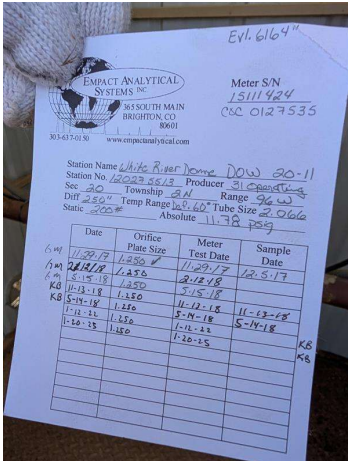 Evl. 6164"
EMPACT ANALYTICAL
SYSTEMS INC
365 SOUTH MAIN
BRIGHTON, CO
80601
303-637-0150 www.empactanalytical.com
Meter S/N
15111424
CSC 0127535
Station Name White River Dome DOW 20-11
Station No. 120275513 Producer 31 Operating
Sec 20 Township 2N Range 96W
Diff 250" Temp Range 0°-60° Tube Size 2.066
Static 200# Absolute 11.78 psig
Date Orifice Plate Size Meter Test Date Sample Date
11-29-17 1.250 11-29-17 12-5-17
2/12/18 1.250 2-12-18
5-15-18 1.250 5-15-18
KB 11-13-18 1.250 11-12-18 11-13-18
KB 5-14-18 1.250 5-14-18 5-14-18
1-12-22 1.250 1-12-22 KB
1-20-25 1.250 1-20-25 KB